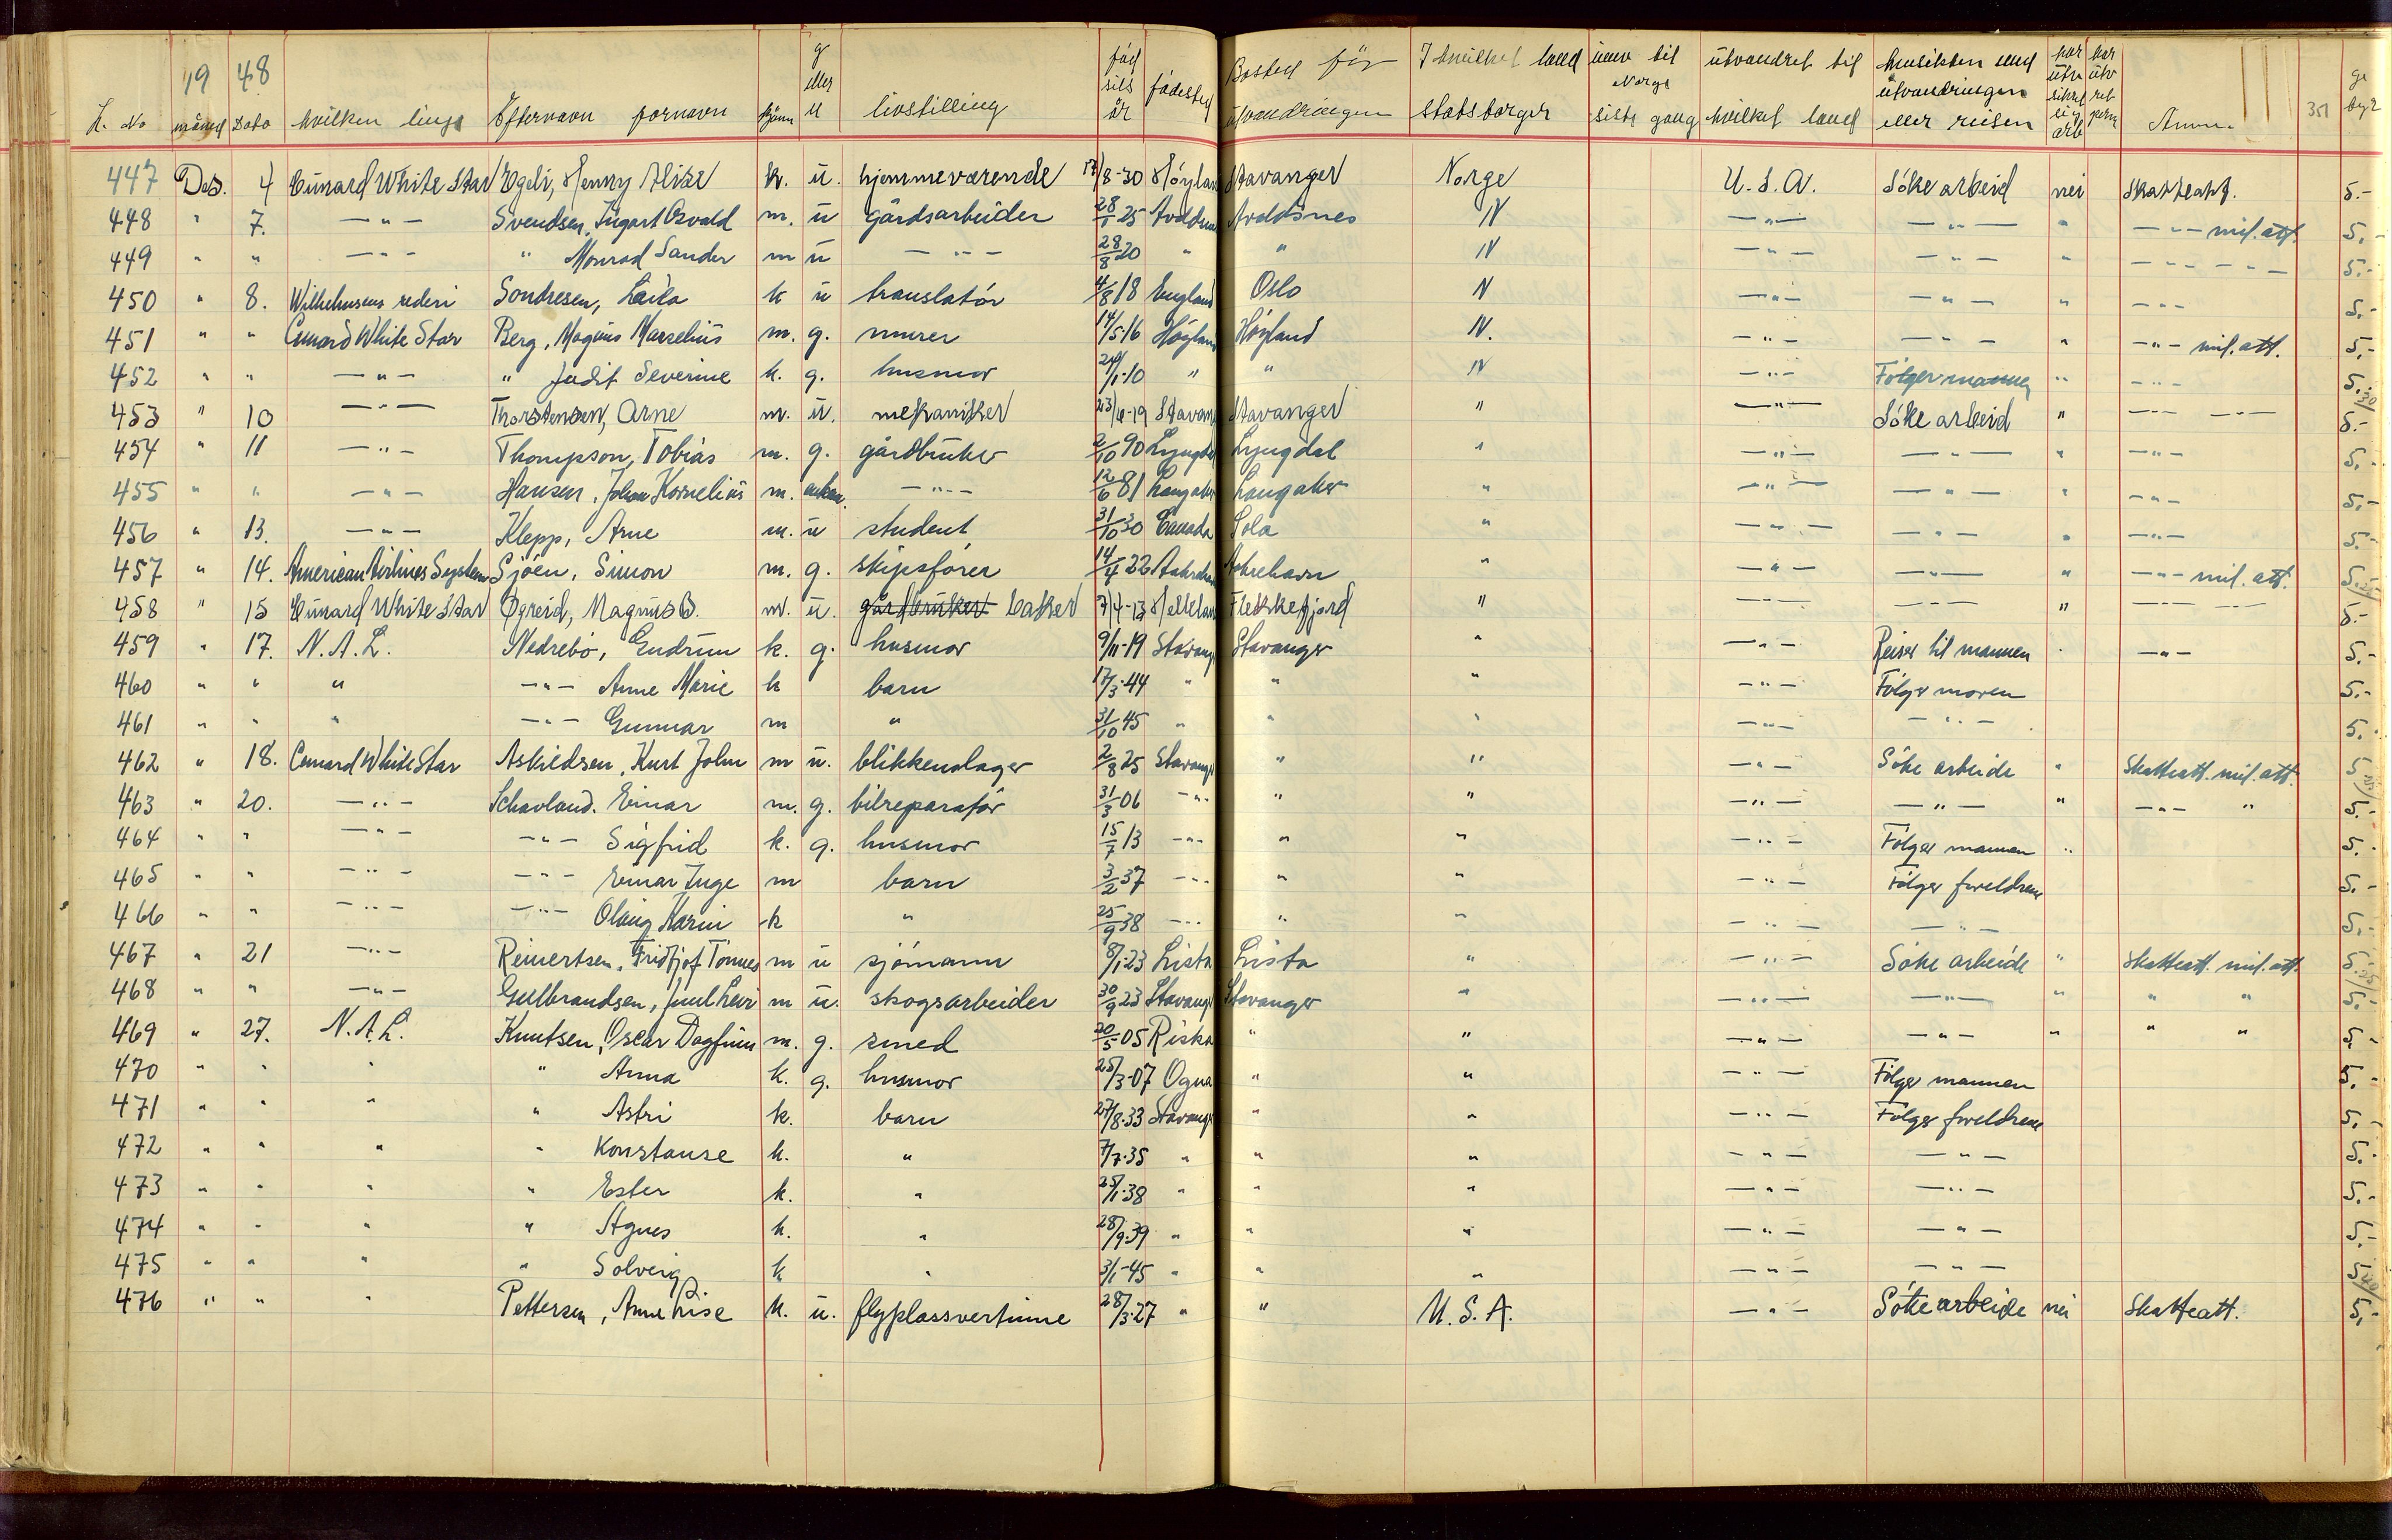 19 48
L. No måned Dato hvilken linje Eftternavn fornavn kjønn g eller u livstilling fødselsår fødested Bosted før utvandringen I hvilket land statsborger innv til Norge siste gang utvandret til hvilket land hensikten med utvandringen eller reisen har utv sikret sig arb har utv ret perm Anm. 351 gebyr
447 Des. 4 Cunard White Star Egeli, Henny Alise k. u. hjemmeværende 17/8-30 Høyland Stavanger Norge U.S.A. Søke arbeid nei Skatteatt. 5.-
448 " 7. -"- Svendsen, Ingart Osvald m. u gårdsarbeider 28/1 25 Avaldsnes Avaldsnes N -"- -"- " -"- mil. att. 5.-
449 " " -"- " Monrad Sander m u -"- 28/8 20 " " N -"- -"- " -"- -"- 5.-
450 " 8. Wilhelmsens rederi Sondresen, Laila k u translatør 4/8 18 England Oslo N -"- -"- " -"- 5.-
451 " " Cunard White Star Berg, Magnus Marselius m. g. murer 14/5-16 Høyland Høyland N. -"- -"- " -"- mil. att. 5.-
452 " " -"- " Judit Severine k. g. husmor 24/1-10 " " N -"- Følger mannen " -"- 5.-
453 " 10 -"- Thorstensen, Arne m. u. mekaniker 23/6-19 Stavang Stavanger " -"- Søke arbeid " -"- -"- 5.-
454 " 11 -"- Thompson, Tobias m. g. gårdbruker 2/10 90 Lyngdal Lyngdal " -"- -"- " -"- 5.-
455 " " -"- Hansen, Johan Kornelius m. enkem. -"- 12/6 81 Langaker Langaker " -"- -"- " -"- 5.-
456 " 13. -"- Klepp, Arne m. u student 31/10 30 Canada Sola " -"- -"- " -"- 5.-
457 " 14. American Airlines System Sjøen, Simon m. g. skipsfører 14/4 22 Aakrehavn Aakrehavn " -"- -"- " -"- mil. att. 5.-
458 " 15 Cunard White Star Øgreid, Magnus B. m. u. gårdbruker baker 7/4-13 Helleland Flekkefjord " -"- -"- " -"- -"- 5.-
459 " 17. N.A.L. Nedrebø, Gudrun k. g. husmor 9/11-19 Stavang Stavanger " -"- Reiser til mannen " -"- 5.-
460 " " " -"- Anne Marie k barn 17/3-44 " " " -"- Følger moren 5.-
461 " " " -"- Gunnar m " 31/10 45 " " " -"- -"- 5.-
462 " 18. Cunard White Star Askildsen, Kurt John m u. blikkenslager 2/8 25 Stavang " " -"- Søke arbeide " Skatteatt. mil. att. 5.-
463 " 20. -"- Schavland. Einar m. g. bilreparatør 31/3 06 -"- " " -"- -"- " -"- " 5.-
464 " " -"- -"- Sigfrid k. g. husmor 15/7 13 -"- " " -"- Følger mannen " 5.-
465 " " -"- -"- Einar Inge m barn 3/2 37 -"- " " -"- Følger foreldrene 5.-
466 " " -"- -"- Olaug Karin k " 25/9 38 -"- " " -"- -"- 5.-
467 " 21 -"- Reinertsen, Fridtjof Tønnes m u sjømann 8/1-23 Lista Lista " -"- Søke arbeide " Skatteatt. mil. att. 5.-
468 " " -"- Gulbrandsen, Juul Levi m u. skogsarbeider 30/9 23 Stavang Stavanger " -"- -"- " " " 5.-
469 " 27. N.A.L. Knutsen, Oscar Dagfinn m. g. smed 20/5 05 Riska " " -"- -"- " " " 5.-
470 " " " " Anna k. g. husmor 25/3-07 Ogna " " -"- Følger mannen 5.-
471 " " " " Astri k. barn 27/8-33 Stavang " " -"- Følger foreldrene 5.-
472 " " " " Konstanse k. " 7/7-35 " " " -"- -"- 5.-
473 " " " " Ester k. " 25/1-38 " " " -"- -"- 5.-
474 " " " " Agnes k. " 28/9-39 " " " -"- -"- 5.-
475 " " " " Solveig k " 3/1-45 " " " -"- -"- 5.-
476 " " " Pettersen, Anne Lise k. u. flyplassvertinne 28/3-27 " " U.S.A. -"- Søke arbeide nei Skatteatt. 5.-